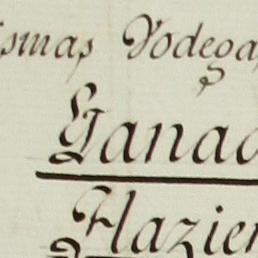 ismas Vodega
Ganad
Hazien